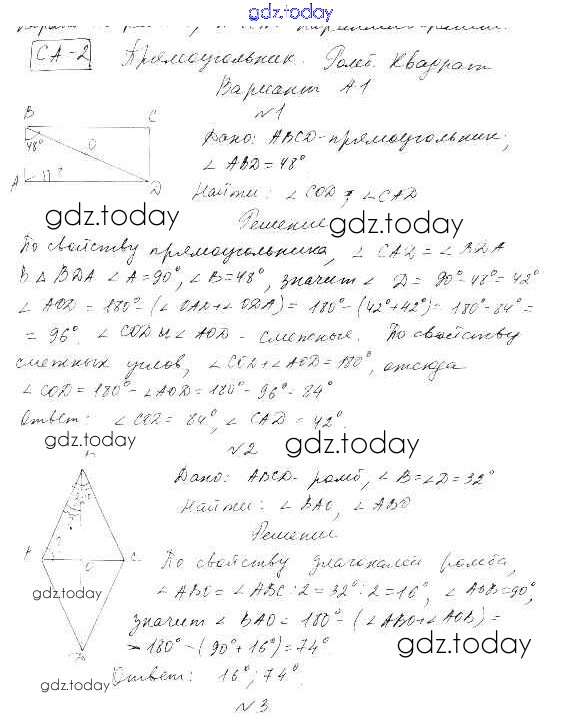 gdz.today
СА-2 Прямоугольник. Ромб. Квадрат
Вариант А1
№1
B C
48° O
A ? D
Дано: ABCD-прямоугольник;
∠ ABD = 48°
Найти: ∠ COD, ∠ CAD
gdz.today gdz.today
Решение
По свойству прямоугольника, ∠ CAD = ∠ BDA
В △ BDA ∠ A = 90°, ∠ B = 48°, значит ∠ D = 90° - 48° = 42°
∠ AOD = 180° - (∠ OAD + ∠ ODA) = 180° - (42° + 42°) = 180° - 84° =
= 96°. ∠ COD и ∠ AOD - смежные. По свойству
смежных углов, ∠ COD + ∠ AOD = 180°, отсюда
∠ COD = 180° - ∠ AOD = 180° - 96° = 84°
Ответ: ∠ COD = 84°, ∠ CAD = 42°.
№2
gdz.today gdz.today
Дано: ABCD- ромб, ∠ B = ∠ D = 32°
Найти: ∠ BAO, ∠ ABO
Решение
A ? O C
По свойству диагоналей ромба,
∠ ABO = ∠ ABC : 2 = 32° : 2 = 16°, ∠ AOB = 90°,
gdz.today
значит ∠ BAO = 180° - (∠ ABO + ∠ AOB) =
= 180° - (90° + 16°) = 74°
gdz.today
Ответ: 16°; 74°.
gdz.today
№3